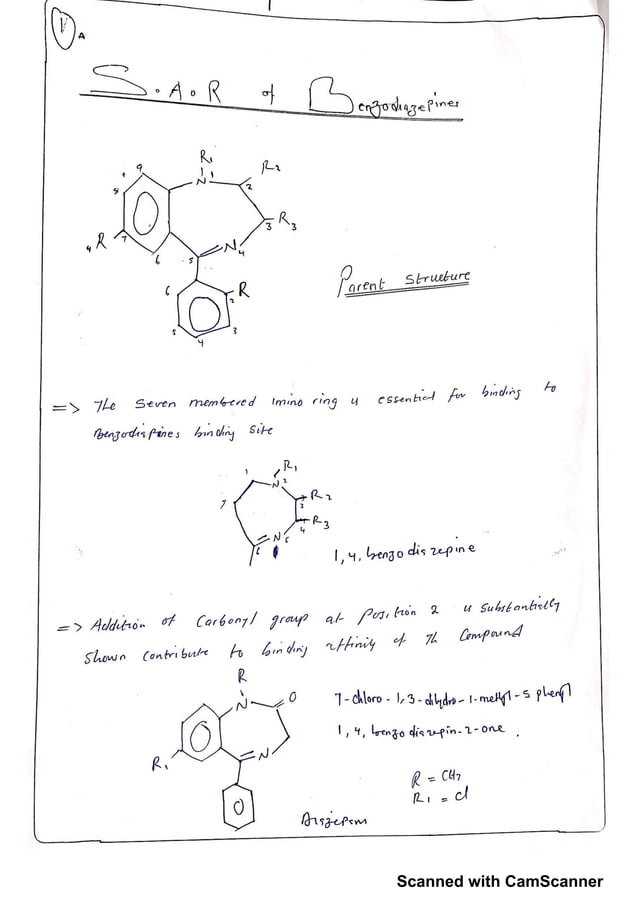 1
A
S.A.R of Benzodiazepines
R1
R2
9
1
N
2
8
R3
3
R
7
N
4
6
5
6
R
2
5
3
4
Parent structure
=> The Seven membered imino ring is essential for binding to
Benzodispines binding site
1
R1
N2
R2
3
7
R3
4
N5
6
1,4, benzo diszepine
=> Addition of Carbonyl group at position 2 is substantially
shown contribute to binding affinity of Th Compound
R
N
O
7-chloro-1,3-dihydro-1-methyl-5 phenyl
1,4, benzo diazepin-2-one.
N
R1
R = CH3
R1 = cl
Diszepam
Scanned with CamScanner